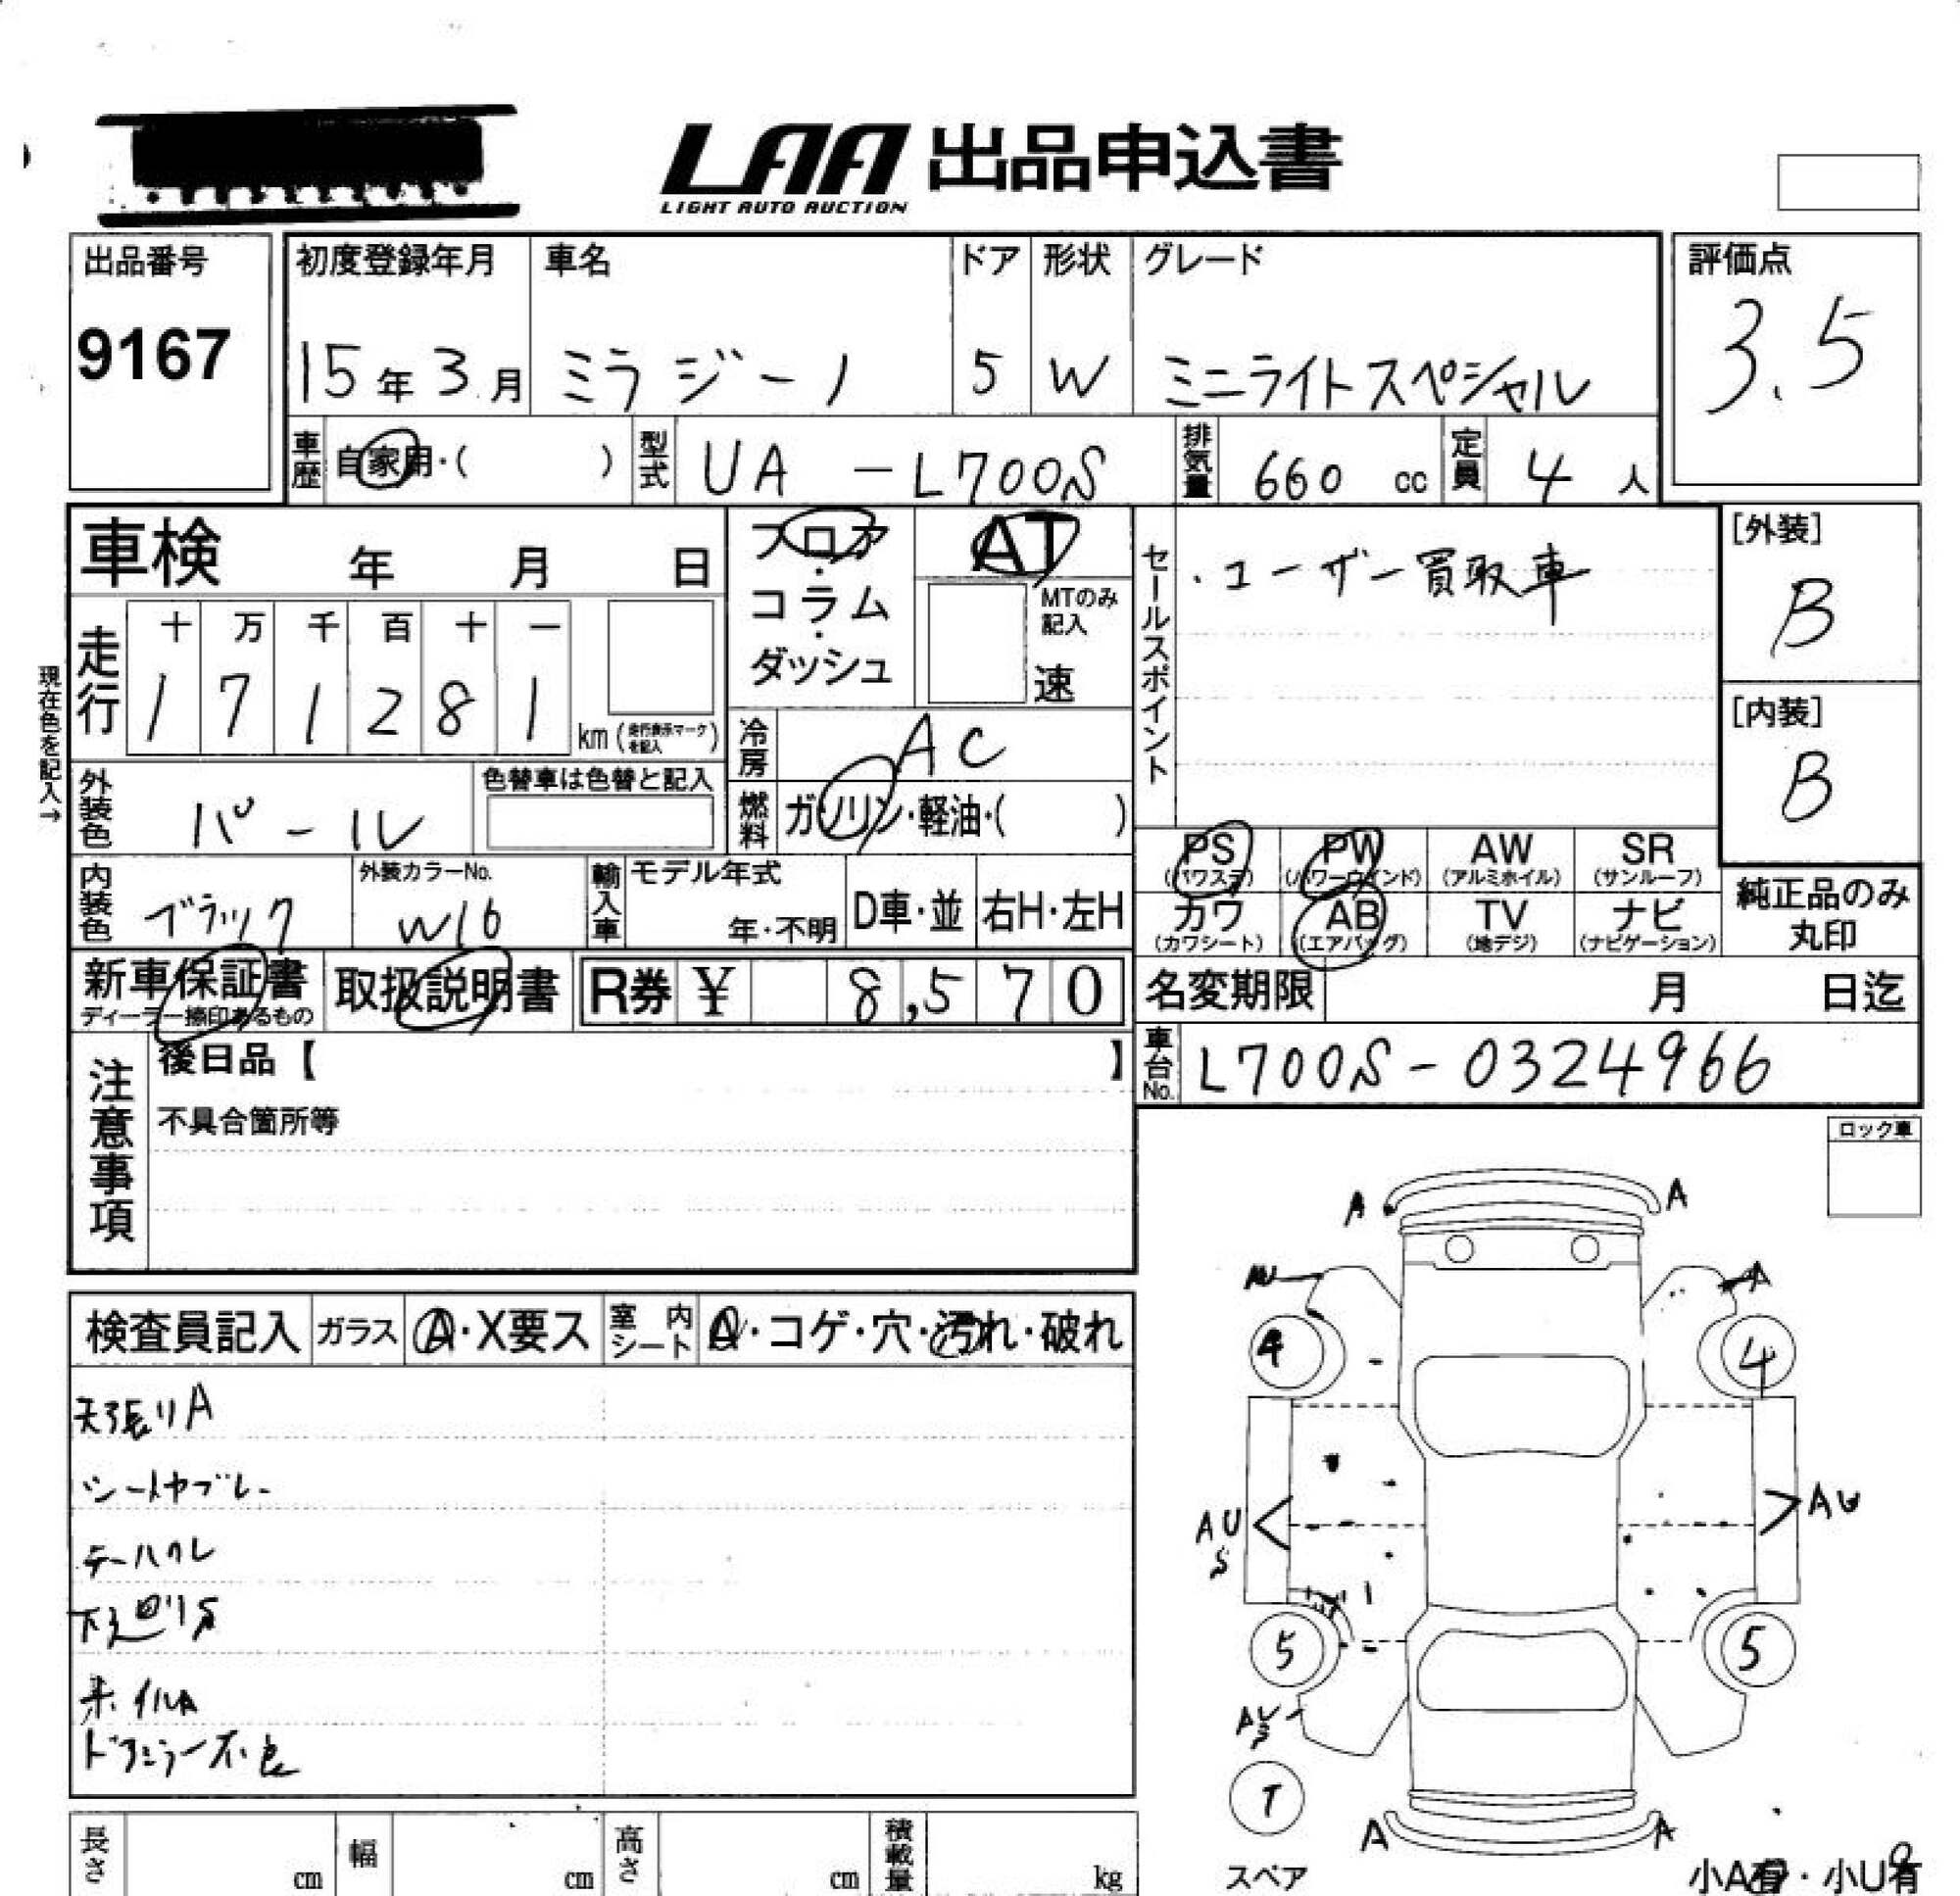 LAA 出品申込書
LIGHT AUTO AUCTION
出品番号
9167
初度登録年月
15年3月
車名
ミラジーノ
ドア
5
形状
W
グレード
ミニライトスペシャル
評価点
3.5
車歴
自家用・( )
型式
UA -L700S
排気量
660 cc
定員
4 人
車検 年 月 日
フロア・コラム・ダッシュ
AT
MTのみ記入
速
セールスポイント
・ユーザー買取車
[外装]
B
[内装]
B
現在色を記入→
走行
十 万 千 百 十 一
1 7 1 2 8 1
km (走行表示マークを記入)
冷房
AC
外装色
パール
色替車は色替と記入
燃料
ガソリン・軽油・( )
PS
(パワステ)
PW
(パワーウインド)
AW
(アルミホイル)
SR
(サンルーフ)
カワ
(カワシート)
AB
(エアバッグ)
TV
(地デジ)
ナビ
(ナビゲーション)
純正品のみ
丸印
内装色
ブラック
外装カラーNo.
W16
輸入車
モデル年式
年・不明
D車・並
右H・左H
新車保証書
ディーラー捺印あるもの
取扱説明書
R券 ¥ 8,570
名変期限 月 日迄
車台No.
L700S-0324966
注意事項
後日品【 】
不具合箇所等
ロック車
検査員記入
ガラス
A・X要ス
室内シート
A・コゲ・穴・汚れ・破れ
天張りA
シートヤブレ
下廻りS
ホイルA
ドアミラー不良
A A
A
4 4
AU
S
AU
5 5
T
スペア
A A
小A有・小U有
長さ cm
幅 cm
高さ cm
積載量 kg